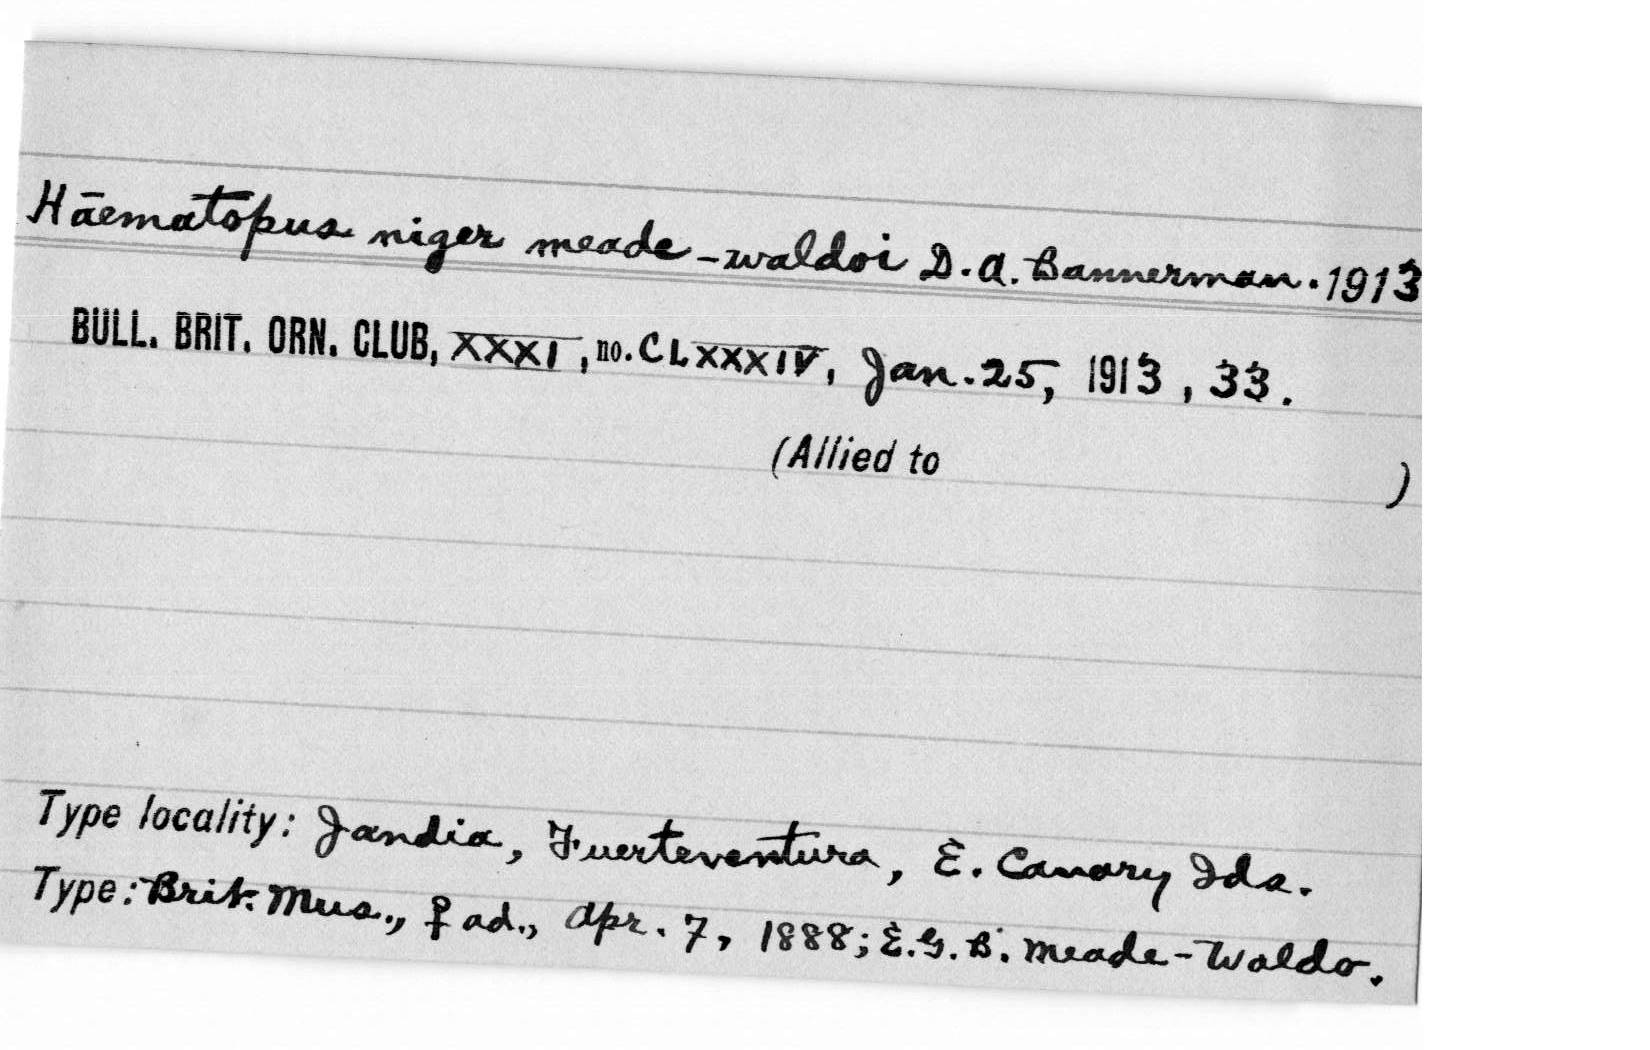 Hāematopus niger meade-waldoi D.A. Bannerman. 1913
BULL. BRIT. ORN. CLUB, XXXI, no. CLXXXIV, Jan. 25, 1913, 33.
(Allied to )
Type locality: Jandia, Fuerteventura, E. Canary Ids.
Type: Brit. Mus., ♀ ad., Apr. 7, 1888; E.G.B. Meade-Waldo.